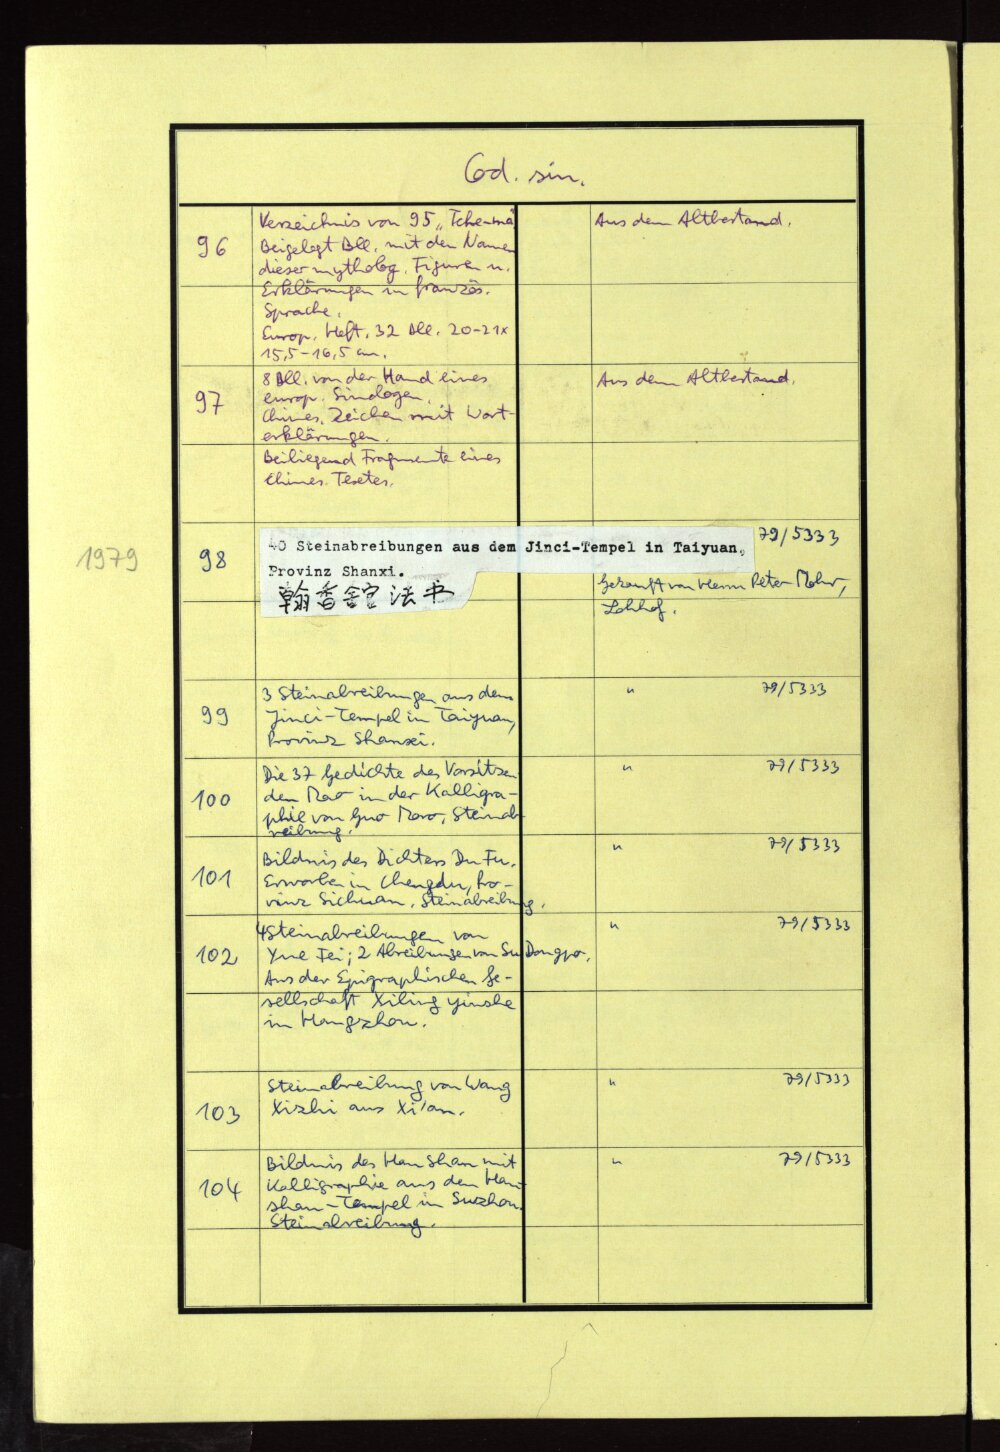 Cod. sin.
96
Verzeichnis von 95 „Tche-ma"
Beigelegt Bll. mit den Namen
dieser mytholog. Figuren u.
Erklärungen in französ.
Sprache.
Europ. Heft. 32 Bll. 20-21x
15,5-16,5 cm.
Aus dem Altbestand.
97
8 Bll. von der Hand eines
europ. Sinologen.
Chines. Zeichen mit Wort-
erklärungen.
Beiliegend Fragmente eines
Chines. Textes.
Aus dem Altbestand.
1979
98
40 Steinabreibungen aus dem Jinci-Tempel in Taiyuan,
Provinz Shanxi.
翰香館法书
79/5333
Gekauft von Herrn Peter Mohr,
Lohhof.
99
3 Steinabreibungen aus dem
Jinci-Tempel in Taiyuan,
Provinz Shanxi.
" 79/5333
100
Die 37 Gedichte des Vorsitzen
den Mao in der Kalligra-
phie von Guo Moro, Steinab
reibung.
" 79/5333
101
Bildnis des Dichters Du Fu.
Erworben in Chengdu, Pro-
vinz Sichuan, Steinabreibung.
" 79/5333
102
4 Steinabreibungen von
Yue Fei; 2 Abreibungen von Su Dongpo.
Aus der Epigraphischen Ge-
sellschaft Xiling yinshe
in Hangzhou.
" 79/5333
103
Steinabreibung von Wang
Xizhi aus Xi'an.
" 79/5333
104
Bildnis des Han Shan mit
Kalligraphie aus dem Han-
shan-Tempel in Suzhou.
Steinabreibung.
" 79/5333